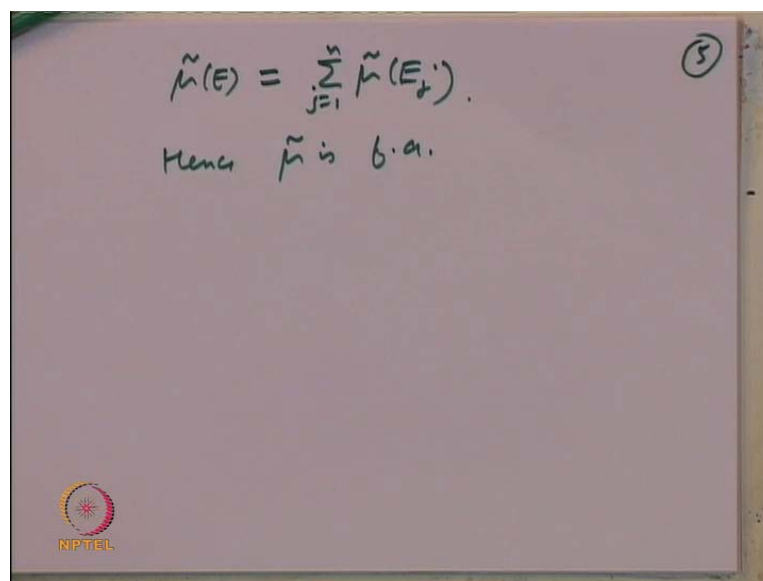 ⑤
μ̃(E) = Σ_{j=1}^{n} μ̃(E_j).
Hence μ̃ is f.a.
NPTEL